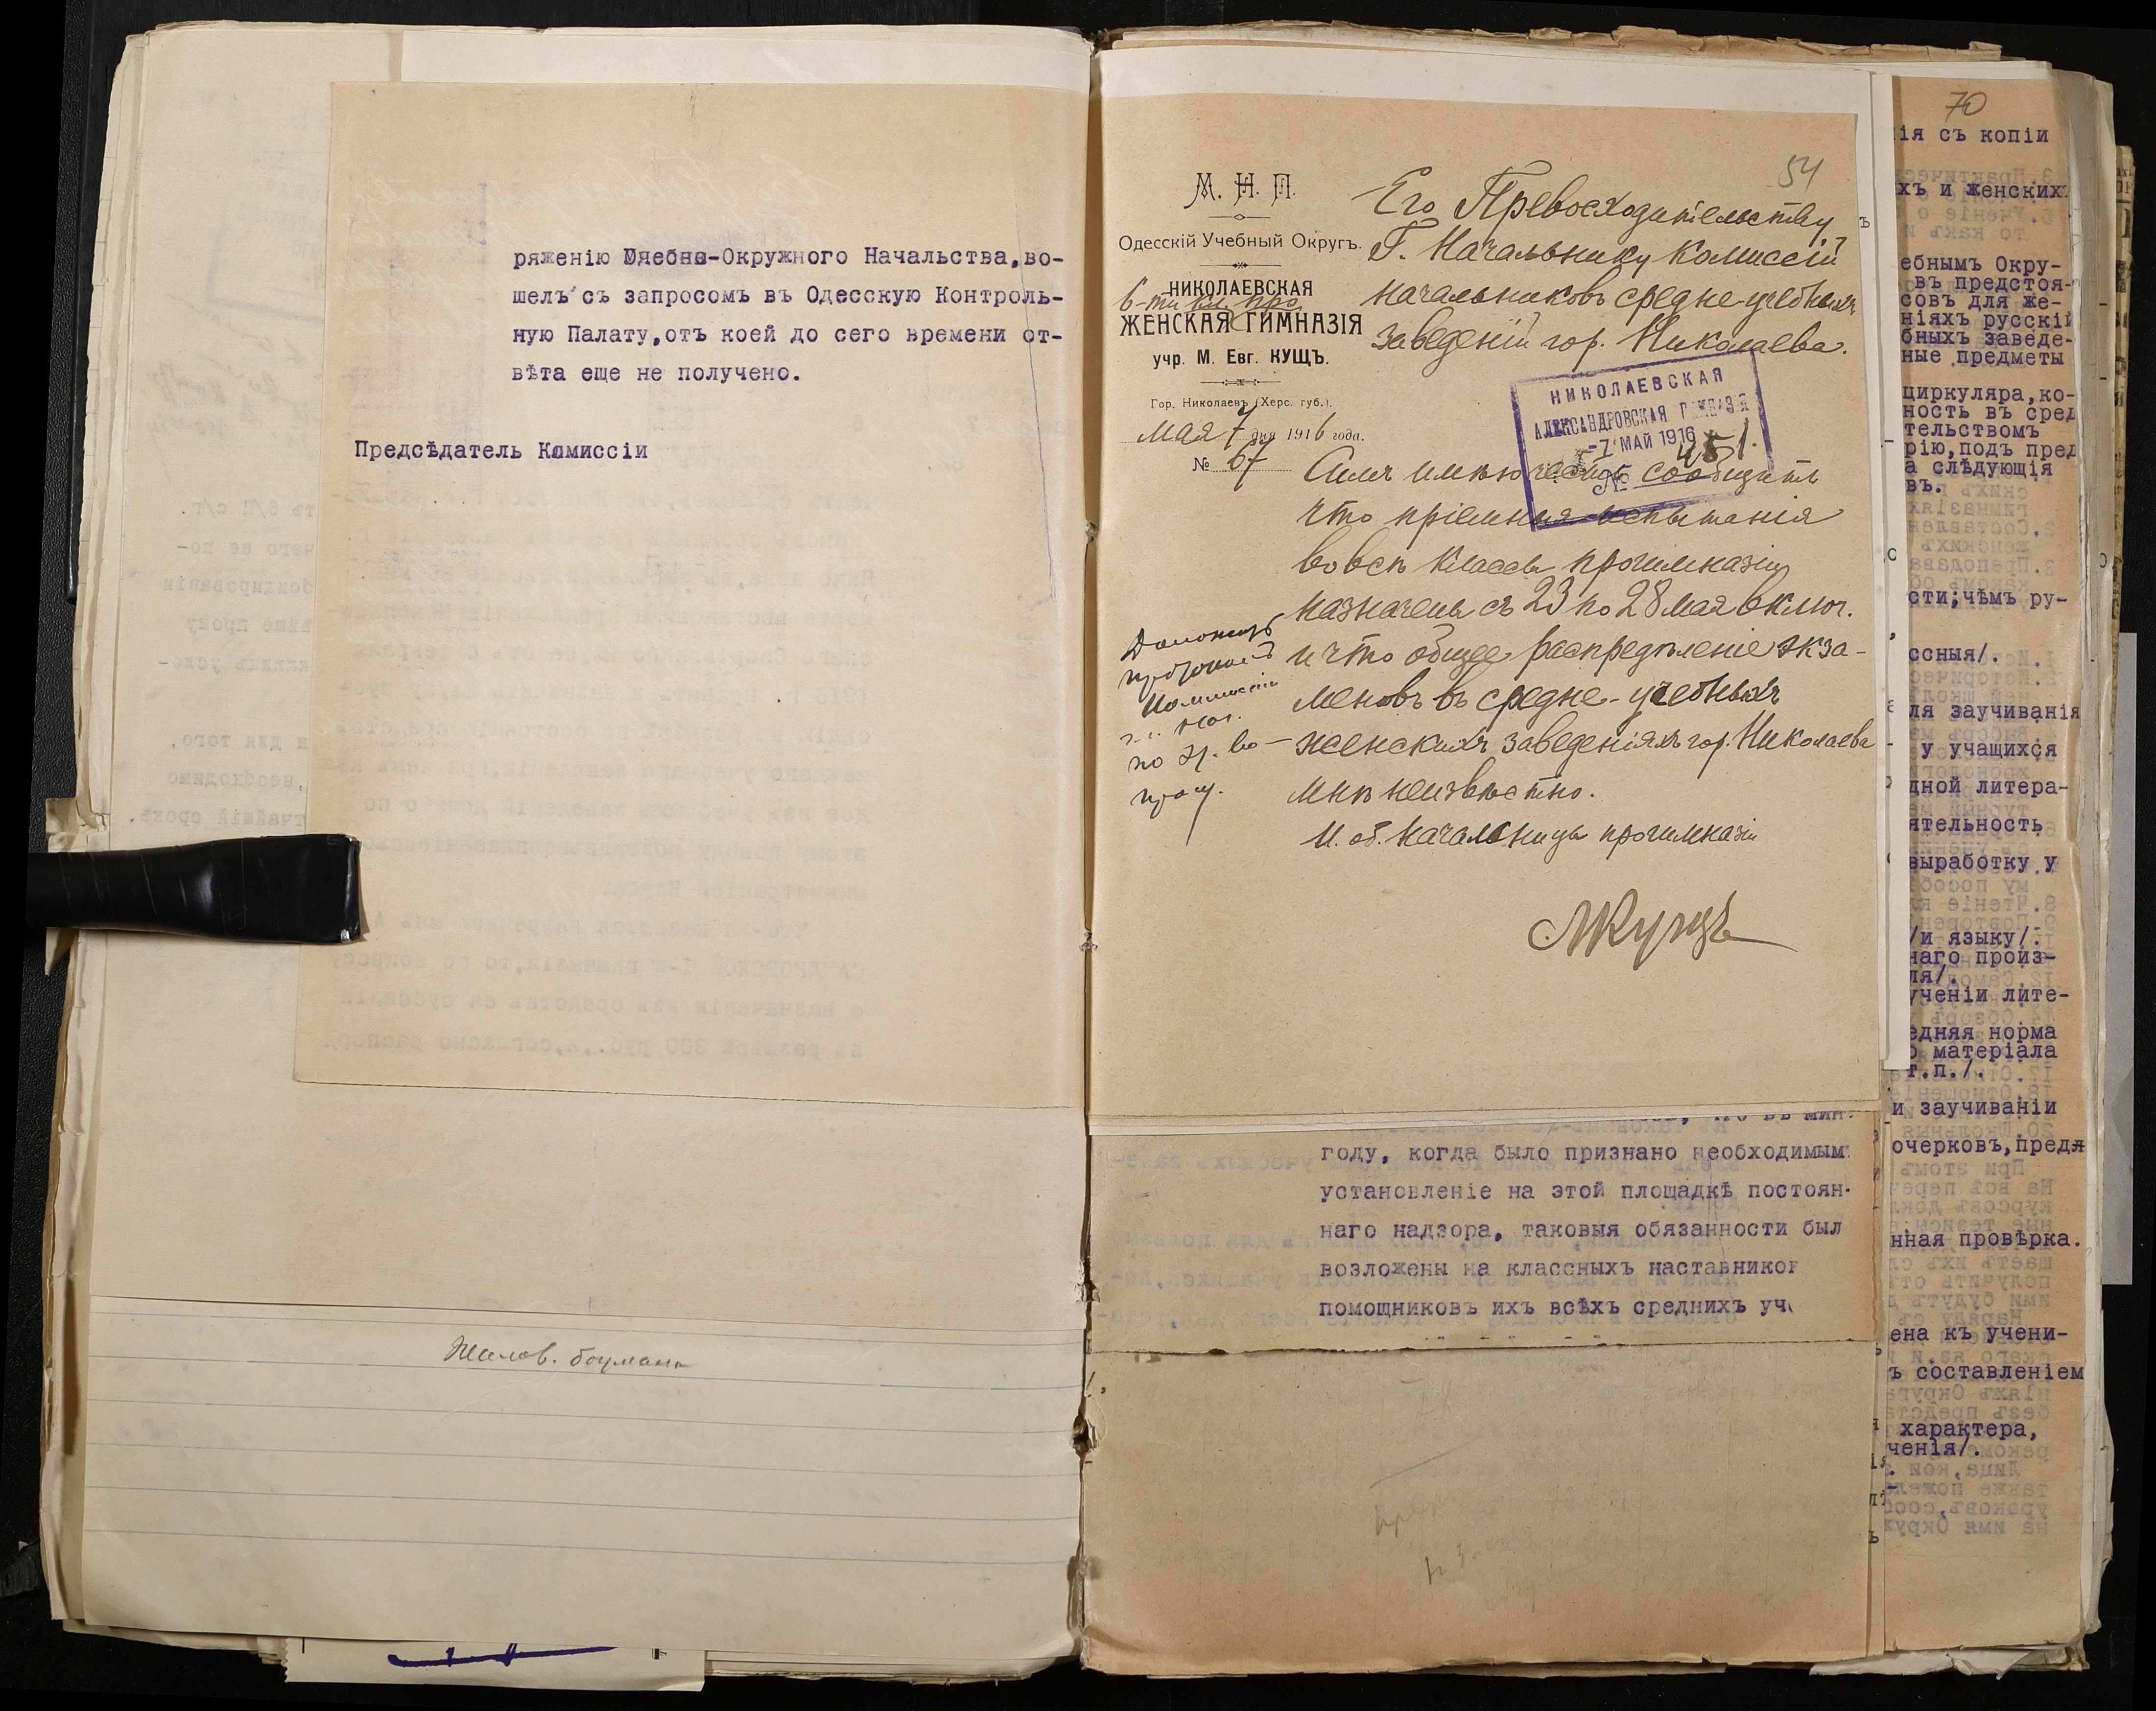 ряженію Учебно-Окружного Начальства, во-
шелъ съ запросомъ въ Одесскую Контроль-
ную Палату, отъ коей до сего времени от-
вѣта еще не получено.
Предсѣдатель Комиссіи
54
М. Н. П.
Одесскій Учебный Округъ.
НИКОЛАЕВСКАЯ
6-ти кл. про
ЖЕНСКАЯ ГИМНАЗІЯ
учр. М. Евг. КУЩЪ.
Гор. Николаевъ (Херс. губ.).
мая 7 дня 1916 года.
№ 67
Его Превосходительству
Г. Начальнику Комиссіи
начальниковъ средне-учебныхъ
заведеній гор. Николаева.
НИКОЛАЕВСКАЯ
АЛЕКСАНДРОВСКАЯ ГИМНАЗІЯ
-7 МАЙ 1916
№ 451.
Симъ имѣю честь сообщить
что пріемныя испытанія
во всѣ классы прогимназіи
назначены съ 23 по 28 мая включ.
и что общее распредѣленіе экза-
меновъ въ средне-учебныхъ
женскихъ заведеніяхъ гор. Николаева
мнѣ неизвѣстно.
И. об. начальницы прогимназіи
МКущъ
Комиссіи
по
году, когда было признано необходимым
установленіе на этой площадкѣ постоян-
наго надзора, таковыя обязанности был
возложены на классныхъ наставников
помощниковъ ихъ всѣхъ среднихъ уч
70
ія съ копіи
хъ и женскихъ
ебнымъ Окру-
въ предстоя-
совъ для же-
ніяхъ русскій
бныхъ заведе-
ные предметы
циркуляра, ко-
ность въ сред
тельствомъ
рію, подъ пред
а слѣдующія
въ.
сти; чѣмъ ру-
ссныя/.
ля заучиванія
у учащихся
дной литера-
ятельность
выработку у
/и языку/.
наго произ-
ля/.
ученіи лите-
едняя норма
матеріала
т.п./.
и заучиваніи
очерковъ, предл
нная провѣрка.
ена къ учени-
ъ составленіем
характера,
ченія/.